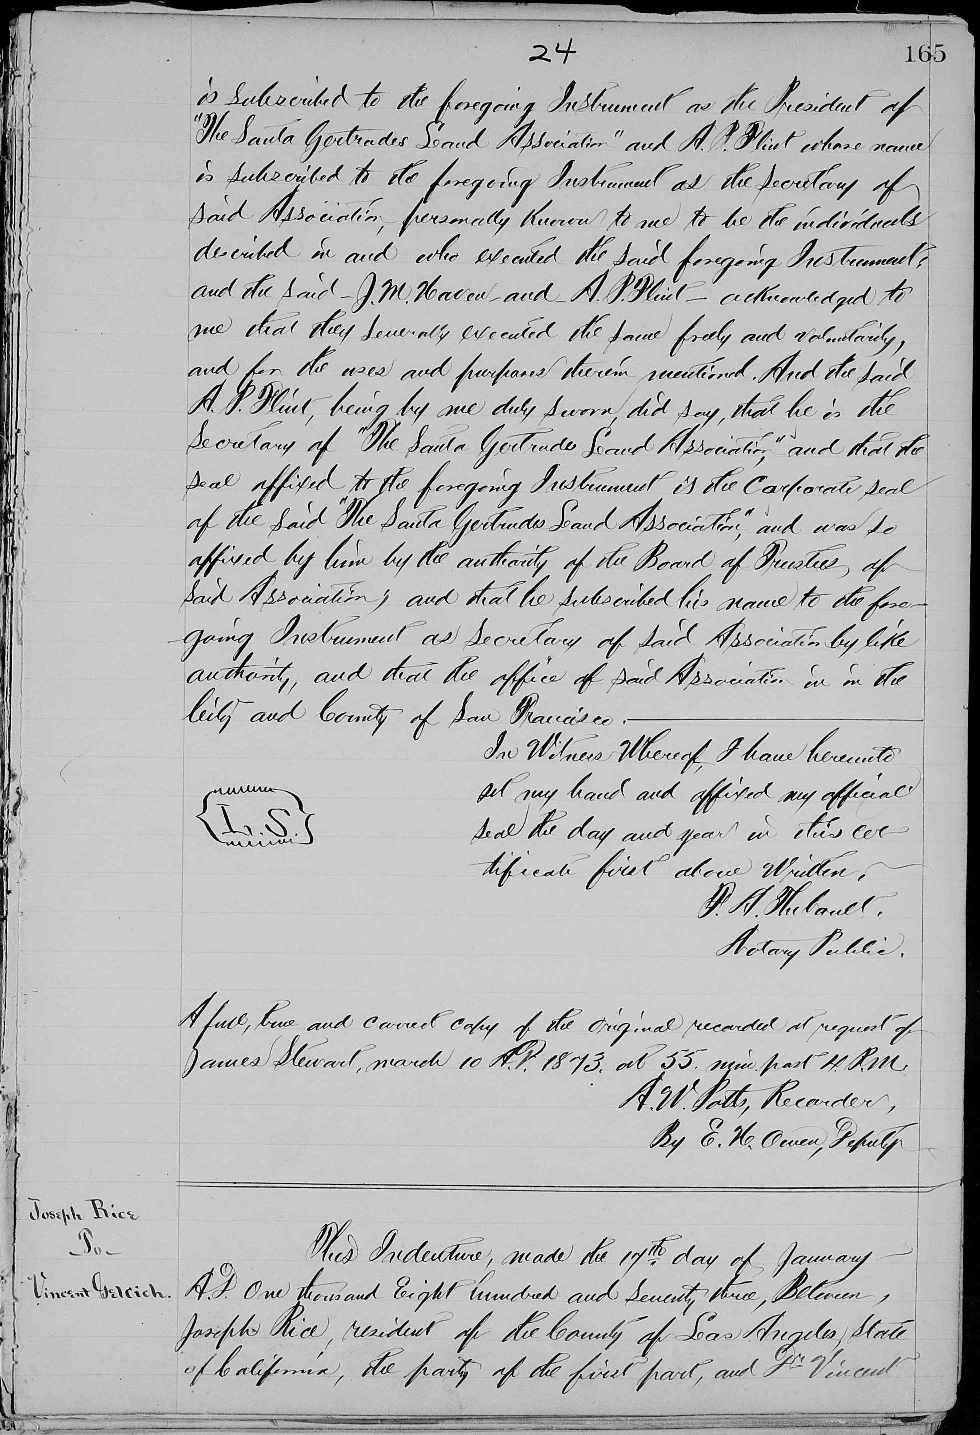 24
165
is subscribed to the foregoing Instrument as the President of
"The Santa Gertrudes Land Association" and A. P. Flint whose name
is subscribed to the foregoing Instrument as the Secretary of
said Association, personally known to me to be the individuals
described in and who executed the said foregoing Instrument;
and the said - J. M. Haven - and A. P. Flint - acknowledged to
me that they severally executed the same freely and voluntarily,
and for the uses and purposes therein mentioned. And the said
A. P. Flint, being by me duly sworn, did say, that he is the
Secretary of "The Santa Gertrudes Land Association," and that the
seal affixed to the foregoing Instrument is the Corporate seal
of the said "The Santa Gertrudes Land Association," and was so
affixed by him by the authority of the Board of Trustees, of
said Association; and that he subscribed his name to the fore-
going Instrument as Secretary of said Association by like
authority, and that the office of said Association in in the
City and County of San Francisco.
In Witness Whereof, I have hereunto
set my hand and affixed my official
seal the day and year in this cer-
tificate first above Written.
L.S.
Notary Public.
A full, true and correct copy of the original recorded at request of
James Stewart, march 10 A.D. 1873. at 55. min past 4. P.M.
A. W. Potts, Recorder,
By E. H. Owen, Deputy
Joseph Rice
To
Vincent Gelcich.
This Indenture, made the 17th day of January
A.D. One thousand Eight hundred and Seventy three, Between,
Joseph Rice, resident of the County of Los Angeles, State
of California, the party of the first part, and Dr. Vincent